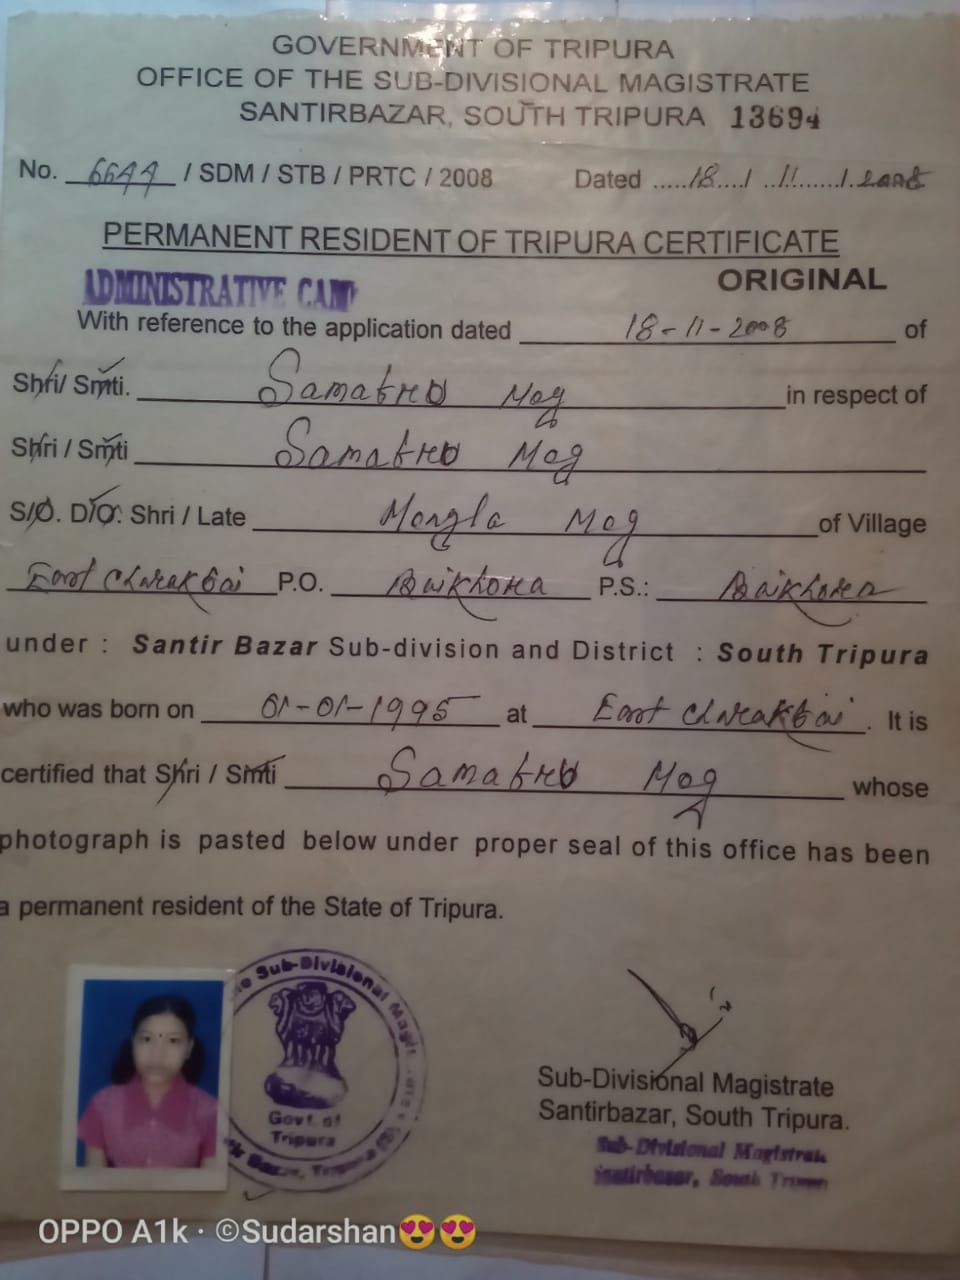 GOVERNMENT OF TRIPURA
OFFICE OF THE SUB-DIVISIONAL MAGISTRATE
SANTIRBAZAR, SOUTH TRIPURA 13694
No. 6644 / SDM / STB / PRTC / 2008 Dated .....18..../ ..11......./.2008
PERMANENT RESIDENT OF TRIPURA CERTIFICATE
ORIGINAL
ADMINISTRATIVE CAMP
With reference to the application dated 18-11-2008 of
Shri/ Smti. Mog in respect of
Shri / Smti Mog
S/O. D/O. Shri / Late Mongla Mog of Village
East Charakbai P.O. Baikhora P.S.: Baikhora
under : Santir Bazar Sub-division and District : South Tripura
who was born on 01-01-1995 at East Charakbai. It is
certified that Shri / Smti Mog whose
photograph is pasted below under proper seal of this office has been
a permanent resident of the State of Tripura.
Sub-Divisional Magist
Govt. of
Tripura
Sub-Divisional Magistrate
Santirbazar, South Tripura.
Sub-Divisional Magistrate
Santirbazar, South Tripura
OPPO A1k · ©Sudarshan😍😍